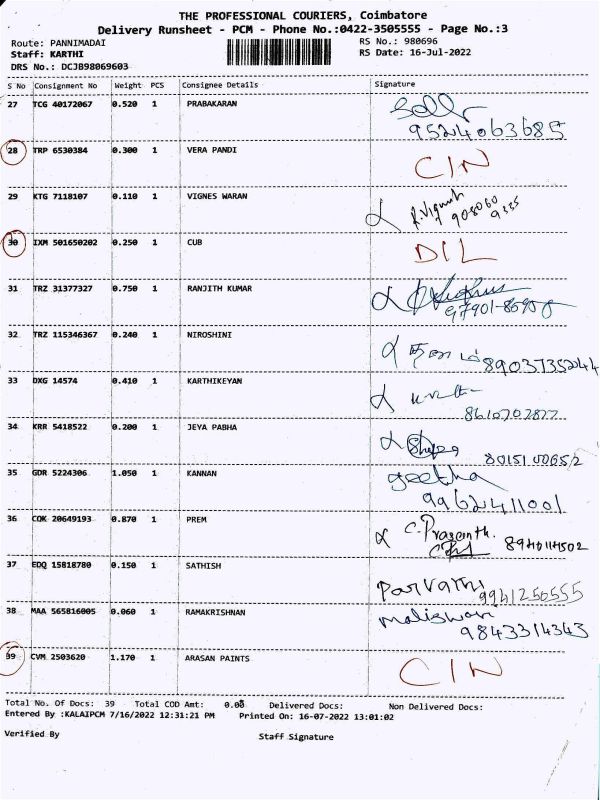 THE PROFESSIONAL COURIERS, Coimbatore
Delivery Runsheet - PCM - Phone No.:0422-3505555 - Page No.:3
Route: PANNIMADAI RS No.: 980696
Staff: KARTHI RS Date: 16-Jul-2022
DRS No.: DCJB98069603
S No Consignment No Weight PCS Consignee Details Signature
27 TCG 40172067 0.520 1 PRABAKARAN
9524063685
28 TRP 6530384 0.300 1 VERA PANDI CIN
29 KTG 7118107 0.110 1 VIGNES WARAN R.Vignesh
908060
9335
30 IXM 501650202 0.250 1 CUB DIL
31 TRZ 31377327 0.750 1 RANJITH KUMAR
32 TRZ 115346367 0.240 1 NIROSHINI 8903735244
33 DXG 14574 0.410 1 KARTHIKEYAN
8610707877
34 KRR 5418522 0.200 1 JEYA PABHA
8015100652
35 GDR 5224306 1.050 1 KANNAN geetha
9962411001
36 COK 20649193 0.870 1 PREM C.Prasanth.
8940114502
37 EDQ 15818780 0.150 1 SATHISH Parvathi
9941256555
38 MAA 565816005 0.060 1 RAMAKRISHNAN maliswari
9843314343
39 CVM 2503620 1.170 1 ARASAN PAINTS CIN
Total No. Of Docs: 39 Total COD Amt: 0.00 Delivered Docs: Non Delivered Docs:
Entered By :KALAIPCM 7/16/2022 12:31:21 PM Printed On: 16-07-2022 13:01:02
Verified By Staff Signature